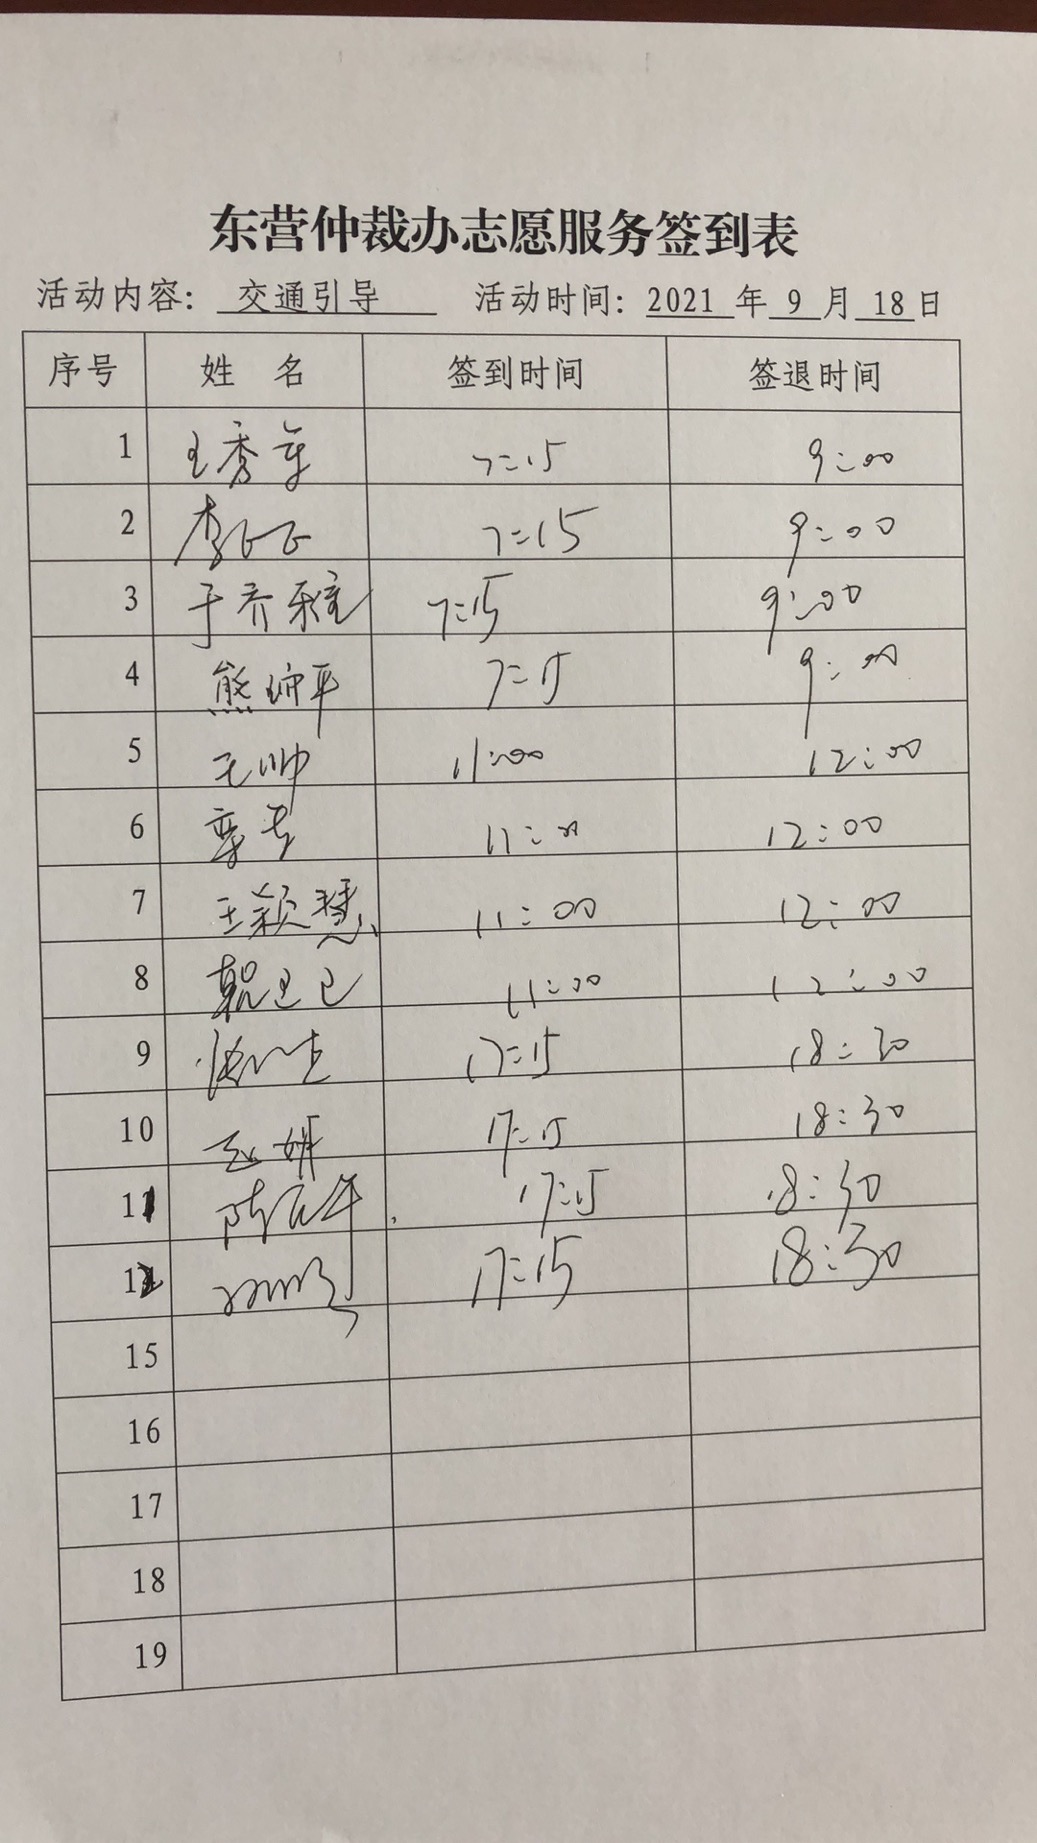 东营仲裁办志愿服务签到表
活动内容： 交通引导 活动时间：2021 年 9 月 18 日
序号 姓 名 签到时间 签退时间
1 王秀军 7:15 9:00
2 李 7:15 9:00
3 于乔雅 7:15 9:00
4 熊 平 7:15 9:00
5 王帅 11:00 12:00
6 11:00 12:00
7 王颖慧 11:00 12:00
8 11:00 12:00
9 17:15 18:30
10 赵妍 17:15 18:30
11 陈 17:15 18:30
12 17:15 18:30
15
16
17
18
19